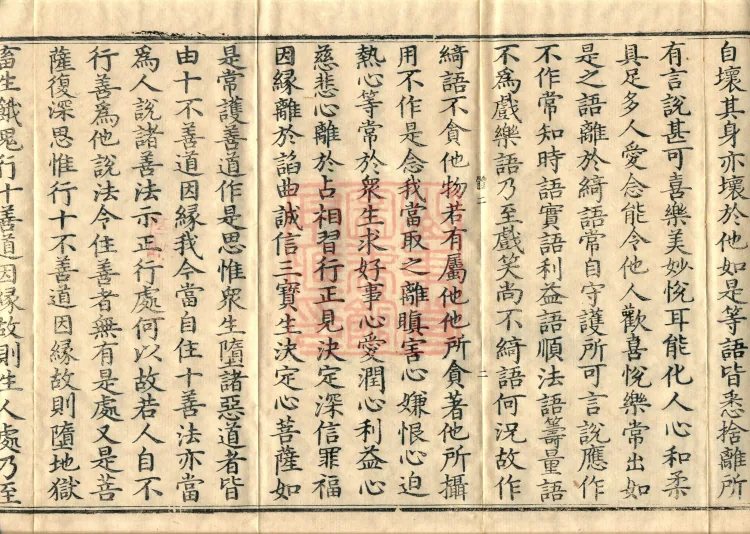 自壞其身亦壞於他如是等語皆悉捨離所
有言說甚可喜樂美妙悅耳能化人心和柔
具足多人愛念能令他人歡喜悅樂常出如
是之語離於綺語常自守護所可言說應作
不作常知時語實語利益語順法語籌量語
不爲戲樂語乃至戲笑尚不綺語何況故作
二
綺語不貪他物若有屬他他所貪著他所攝
用不作是念我當取之離瞋害心嫌恨心迫
熱心等常於衆生求好事心愛潤心利益心
慈悲心離於占相習行正見決定深信罪福
因緣離於諂曲誠信三寶生決定心菩薩如
是常護善道作是思惟衆生墮諸惡道者皆
由十不善道因緣我今當自住十善法亦當
爲人說諸善法示正行處何以故若人自不
行善爲他說法令住善者無有是處又是菩
薩復深思惟行十不善道因緣故則墮地獄
畜生餓鬼行十善道因緣故則生人處乃至